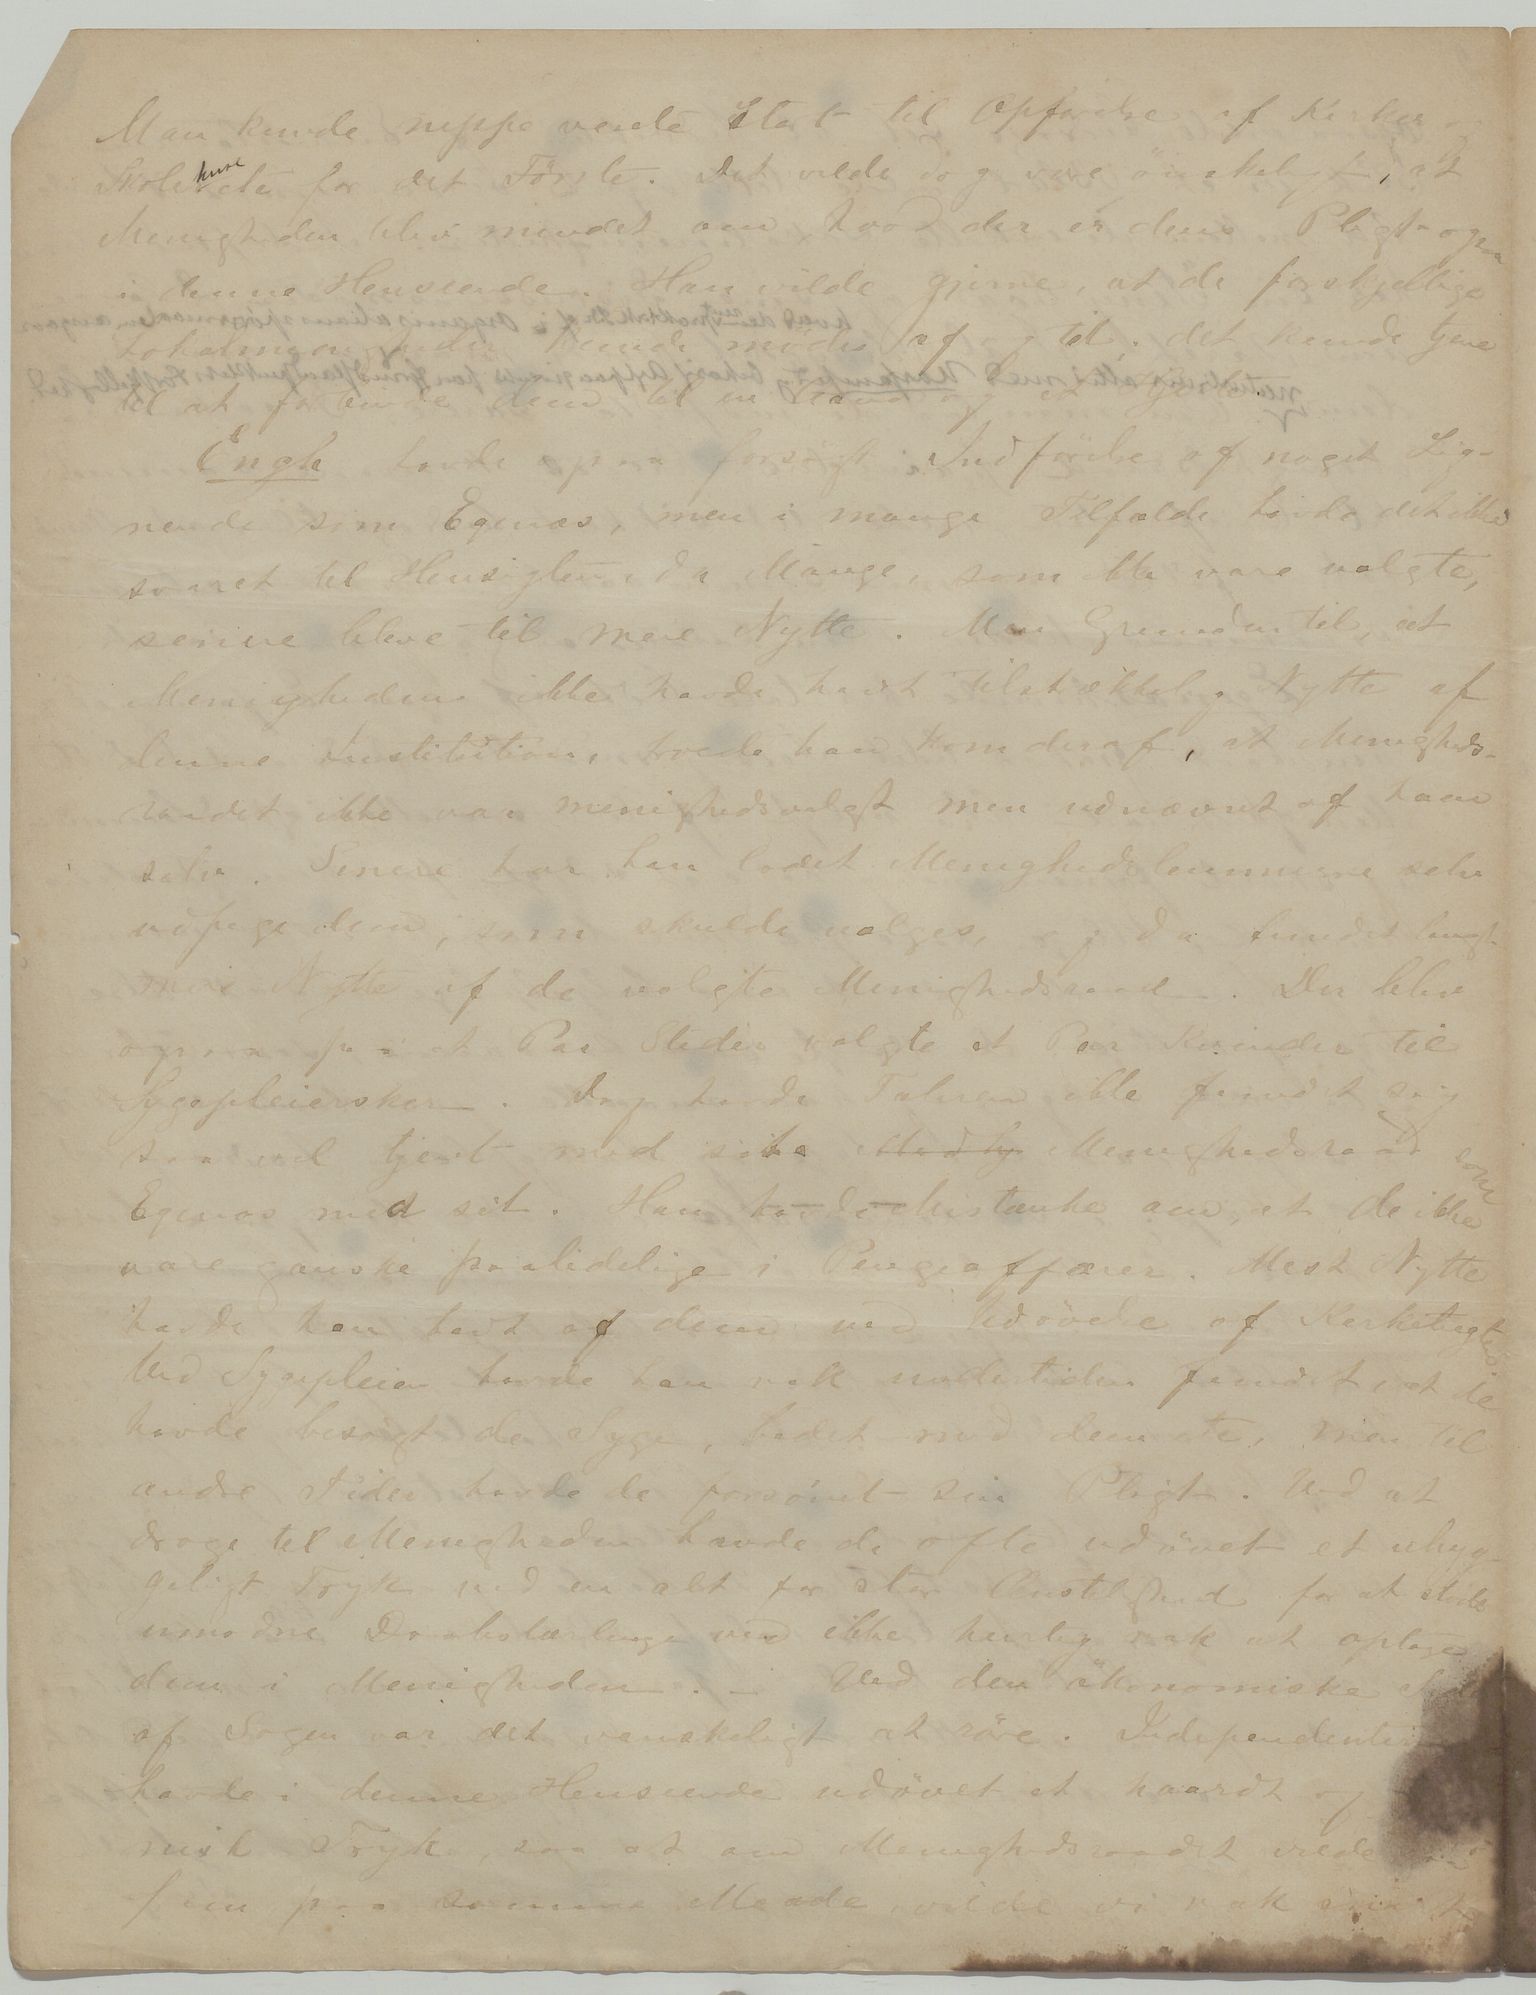 Man kunde neppe vente Stort til Opförelse af Kirker og
Skolehuse etc for det Förste. Det vilde dog være önskeligt, at
Menigheden blev mindet om, hvad der er dens Pligt ogsaa
i denne Henseende. Han vilde gjerne, at de forskjellige
Lokalmenigheder kunde mödes af og til; det kunde tjene
til at forbinde dem til en Aand og et Hjerte.
Engh havde ogsaa forsögt Indförelse af noget Lig-
nende som Egenæs, men i mange Tilfælde havde det ikke
svaret til Hensigten, da Mange, som ikke vare valgte,
senere bleve til mere Nytte. Men Grunden til, at
Menigheden ikke havde havt tilstrækkelig Nytte af
denne Institution, troede han kom deraf, at Menigheds-
raadet ikke var menighedsvalgt men udnævnt af ham
selv. Senere har han ladet Menighedslemmerne selv
udpege dem, som skulde vælges, og da fundet langt
mere Nytte af de valgte Menighedsraad. Der blev
ogsaa paa et Par Steder valgte et Par Kvinder til
Sygepleiersker. Dog havde Taleren ikke fundet sig
saa vel tjent med sine Menighedsraad som
Egenæs med sit. Han havde Mistanke om, at de ikke
vare ganske paalidelige i Pengeaffærer. Mest Nytte
havde han havt af dem ved Udövelse af Kirketugten.
Ved Sygepleien havde han nok undertiden fundet, at de
havde besögt de Syge, bedet med dem etc, men til
andre Tider havde de forsömt sin Pligt. Ved at
drage til Menigheden havde de ofte udövet et uhyg-
geligt Tryk ved en alt for stor Ænstelighed for at støde
umodne Daabslærlinge ved ikke hurtig nok at optage
dem i Menigheden. – Ved den ökonomiske Side
af Sagen var det vanskeligt at röre. Independenterne
havde i denne Henseende udövet et haardt og
misk Tryk, saa at om Menighedsraadet vilde
frem paa samme Maade, vilde vi nok snart